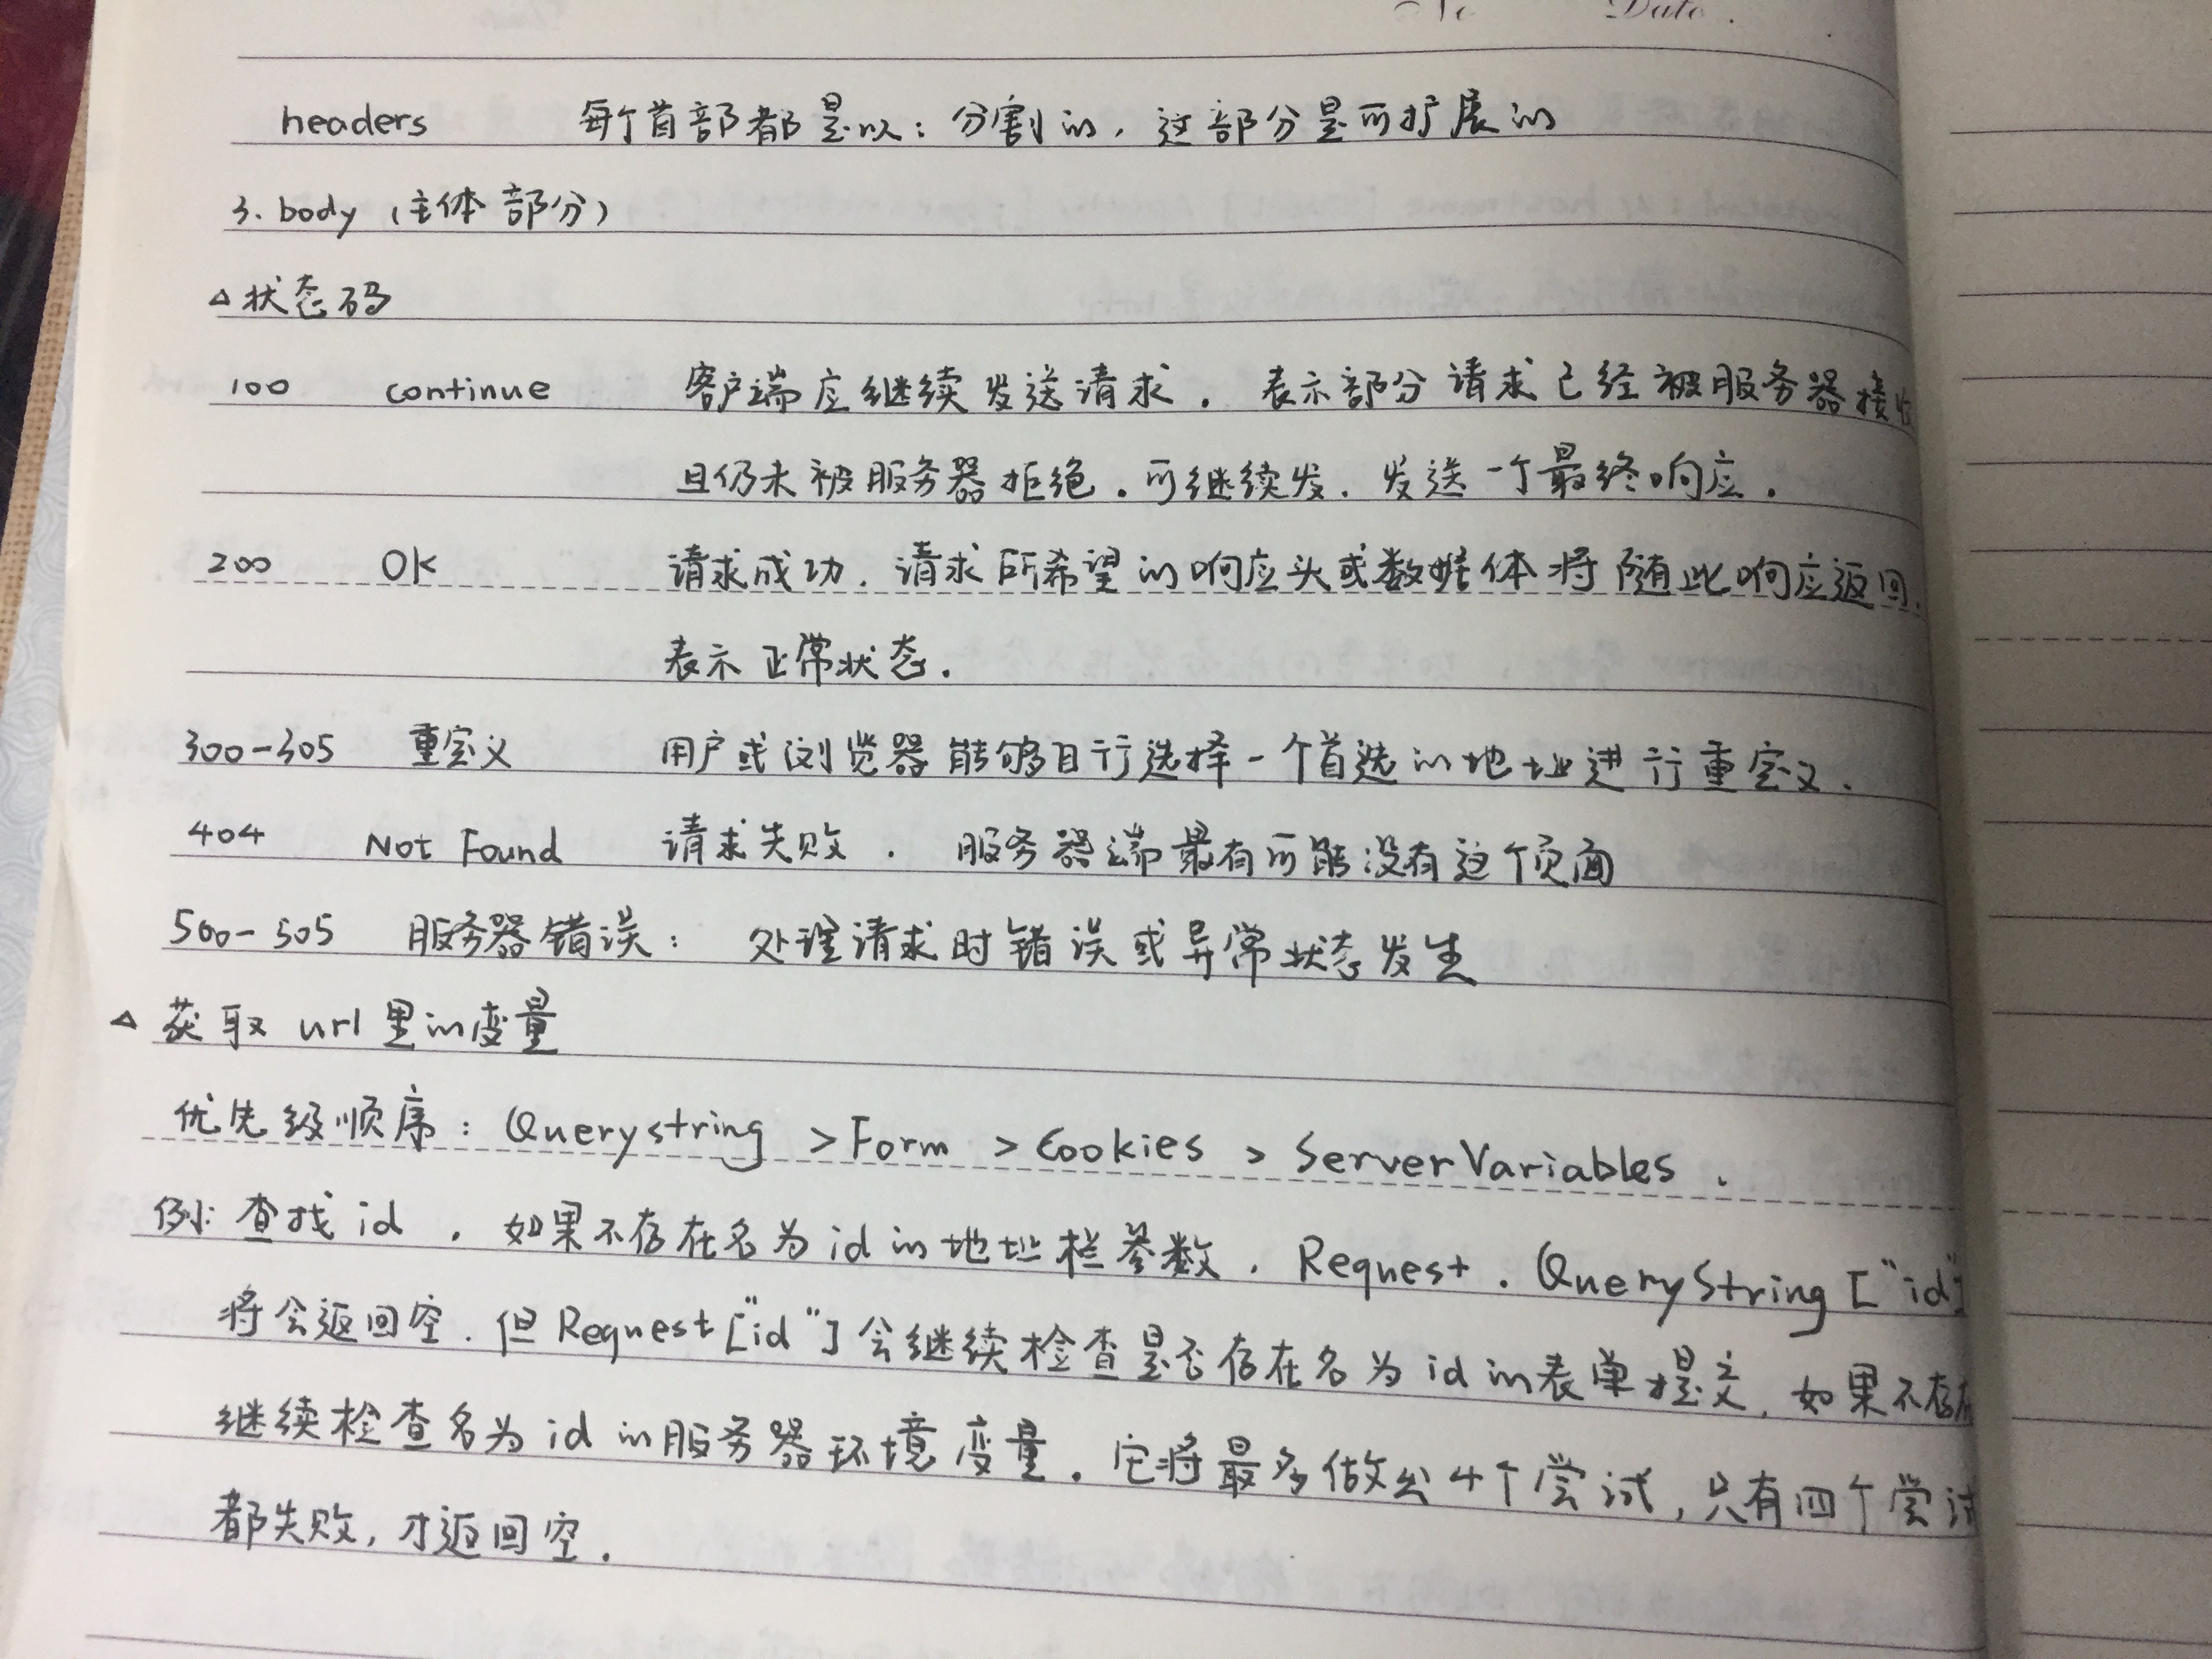 Date.
headers 每个首部都是以：分割的，这部分是可扩展的
3. body（主体部分）
△ 状态码
100 continue 客户端应继续发送请求．表示部分请求已经被服务器接收
且仍未被服务器拒绝．可继续发．发送一个最终响应．
200 Ok 请求成功．请求所希望的响应头或数据体将随此响应返回.
表示正常状态．
300-305 重定义 用户或浏览器能够自行选择一个首选的地址进行重定义．
404 Not Found 请求失败．服务器端最有可能没有这个页面
500-505 服务器错误： 处理请求时错误或异常状态发生
△ 获取url里的变量
优先级顺序：Querystring > Form > Cookies > ServerVariables．
例：查找id，如果不存在名为id的地址栏参数．Request．QueryString["id"]
将会返回空．但Request["id"]会继续检查是否存在名为id的表单提交．如果不存在
继续检查名为id的服务器环境变量．它将最多做出4个尝试，只有四个尝试
都失败，才返回空．